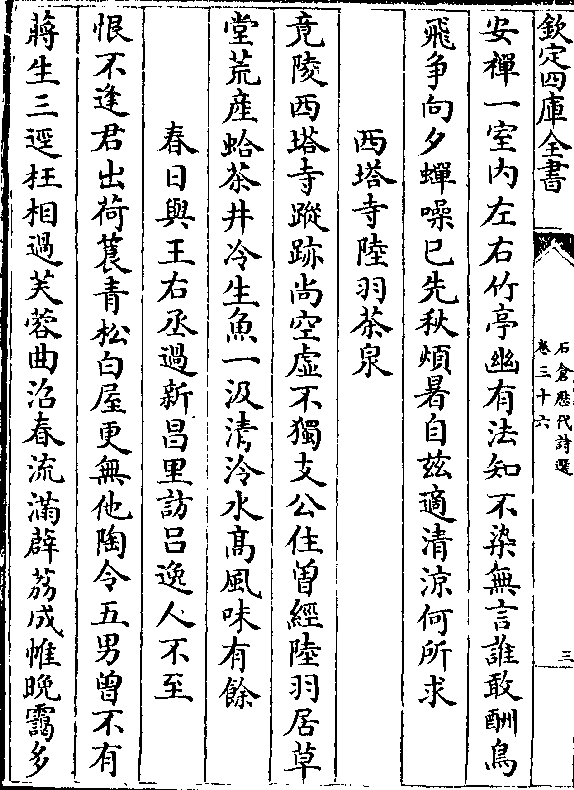 欽定四庫全書
石倉歷代詩選
卷三十六
三
安禪一室内左右竹亭幽有法知不染無言誰敢酬鳥
飛争向夕蟬噪已先秋煩暑自兹適清涼何所求
西塔寺陸羽茶泉
竟陵西塔寺蹤跡尚空虚不獨支公住曽經陸羽居草
堂荒産蛤茶井冷生魚一汲清泠水髙風味有餘
春日與王右丞過新昌里訪吕逸人不至
恨不逢君出荷蓑青松白屋更無他陶令五男曽不有
蔣生三逕枉相過芙蓉曲沼春流滿薜荔成帷晚靄多